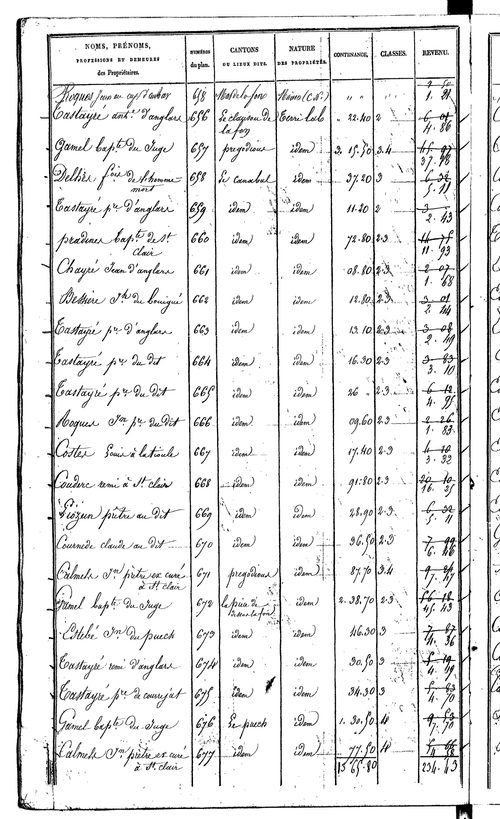 NOMS, PRÉNOMS,
PROFESSIONS ET DEMEURES
des Propriétaires.
NUMÉROS
du plan.
CANTONS
OU LIEUX DITS.
NATURE
DES PROPRIÉTÉS.
CONTENANCE.
CLASSES.
REVENU.
Roques Jean
658
" "
"
1. 21
Castayré d'anglars 656
22.40 2
la fon
4. 86
Gamel bapte du Juge 657 pregodious idem 3. 15.50 3.4
37.78
658 Le canabal idem 37.20 3
5. 11
Castayré pre d'anglars 659 idem idem 11.20 2
2. 43
pradines bapte de st 660 idem idem 72.80 2.3
clair
11. 93
Chayré Jean d'anglars 661 idem idem 08.80 2.3 2 07
1. 68
Bessiere Jh du 662 idem idem 12.80 2.3 3 01
2. 44
Castayré pre d'anglars 663 idem idem 13.10 2.3 3 08
2. 49
Castayré pre du dit 664 idem idem 16.30 2.3 3 83
3. 10
Castayré pre du dit 665 idem idem 26 . 2.3 6 12
4. 95
Roques Jn pre du dit 666 idem idem 09.60 2.3 2 26
1. 83
Costes Louis à 667 idem idem 17.40 2.3 4 10
3. 33
Couderc remi à st clair 668 idem idem 91.80 2.3 20 10
16. 35
prêtre au dit 669 idem idem 28.90 2.3 6 32
5. 11
Cournede claude au dit 670 idem idem 36.50 2.3 7 99
6. 46
Calmets Jn prêtre ex curé 671 pregodious idem 87.70 3.4 9 24
à st clair
7. 47
Gamel bapte du Juge 672 idem 2. 38.70 2.3
45. 43
Estebé Jn du puech 673 idem idem 46.30 3 7 87
36
Castayré remi d'anglars 674 idem idem 30.50 3 5 19
4. 19
Castayre pre de courrejat 675 idem idem 34.30 3 5 83
4. 70
Gamel bapte du Juge 676 Le puech idem 1. 30.50 4 9 53
7. 70
Calmets Jn prêtre ex curé 677 idem idem 77.50 4
à st. clair
13 65.80 234. 43